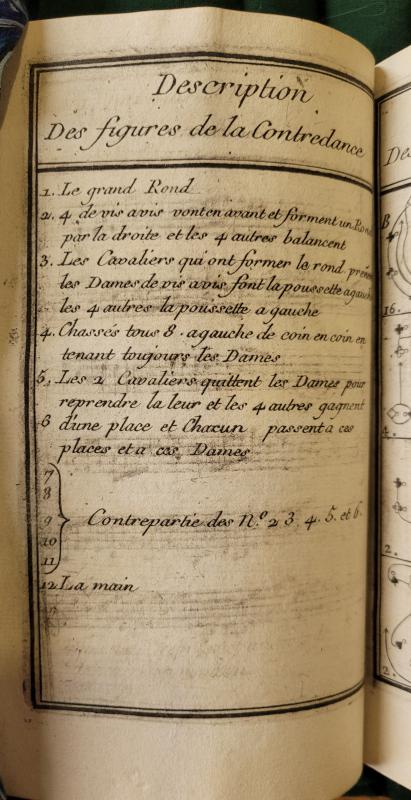 Description
Des figures de la Contredance
1. Le grand Rond
2. 4 de vis a vis vont en avant et forment un Rond
par la droite et les 4 autres balancent
3. Les Cavaliers qui ont former le rond
les Dames de vis a vis, font la poussette a gauche
les 4 autres la poussette a gauche
4. Chassés tous 8. a gauche de coin en coin en
tenant toujours les Dames
5. Les 2 Cavaliers quittent les Dames pour
reprendre la leur et les 4 autres gagnent
6 d'une place et Chacun passent a ces
places et a ces Dames
7
8
9 Contrepartie des N.º 2 3 4. 5. et 6.
10
11
12 La main
De
B
16.
2.
2.